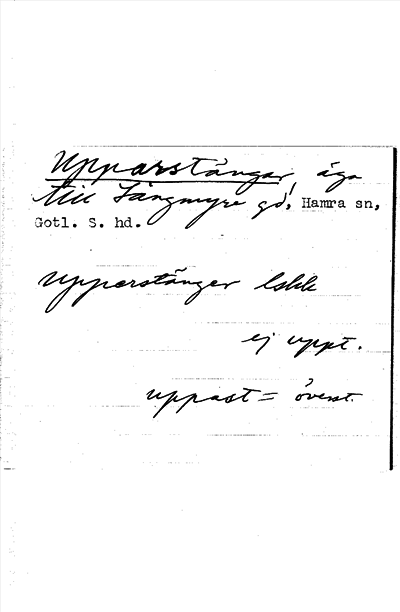 Upparstångar, äga
till Långmyre gd, Hamra sn,
Gotl. S. hd.
Upparstänger lskk
ej uppt.
uppast = överst.